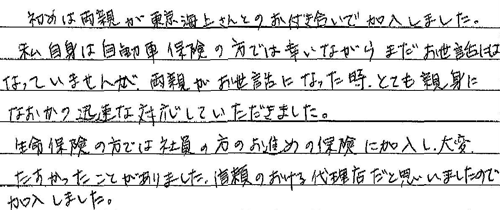 初めは両親が東京海上さんとのお付き合いで加入しました。
私自身は自動車保険の方では幸いながらまだお世話には
なっていませんが、両親がお世話になった時、とても親身に
なおかつ迅速な対応していただきました。
生命保険の方では社員の方のお進めの保険に加入し、大変
たすかったことがありました。信頼のおける代理店だと思いましたので
加入しました。